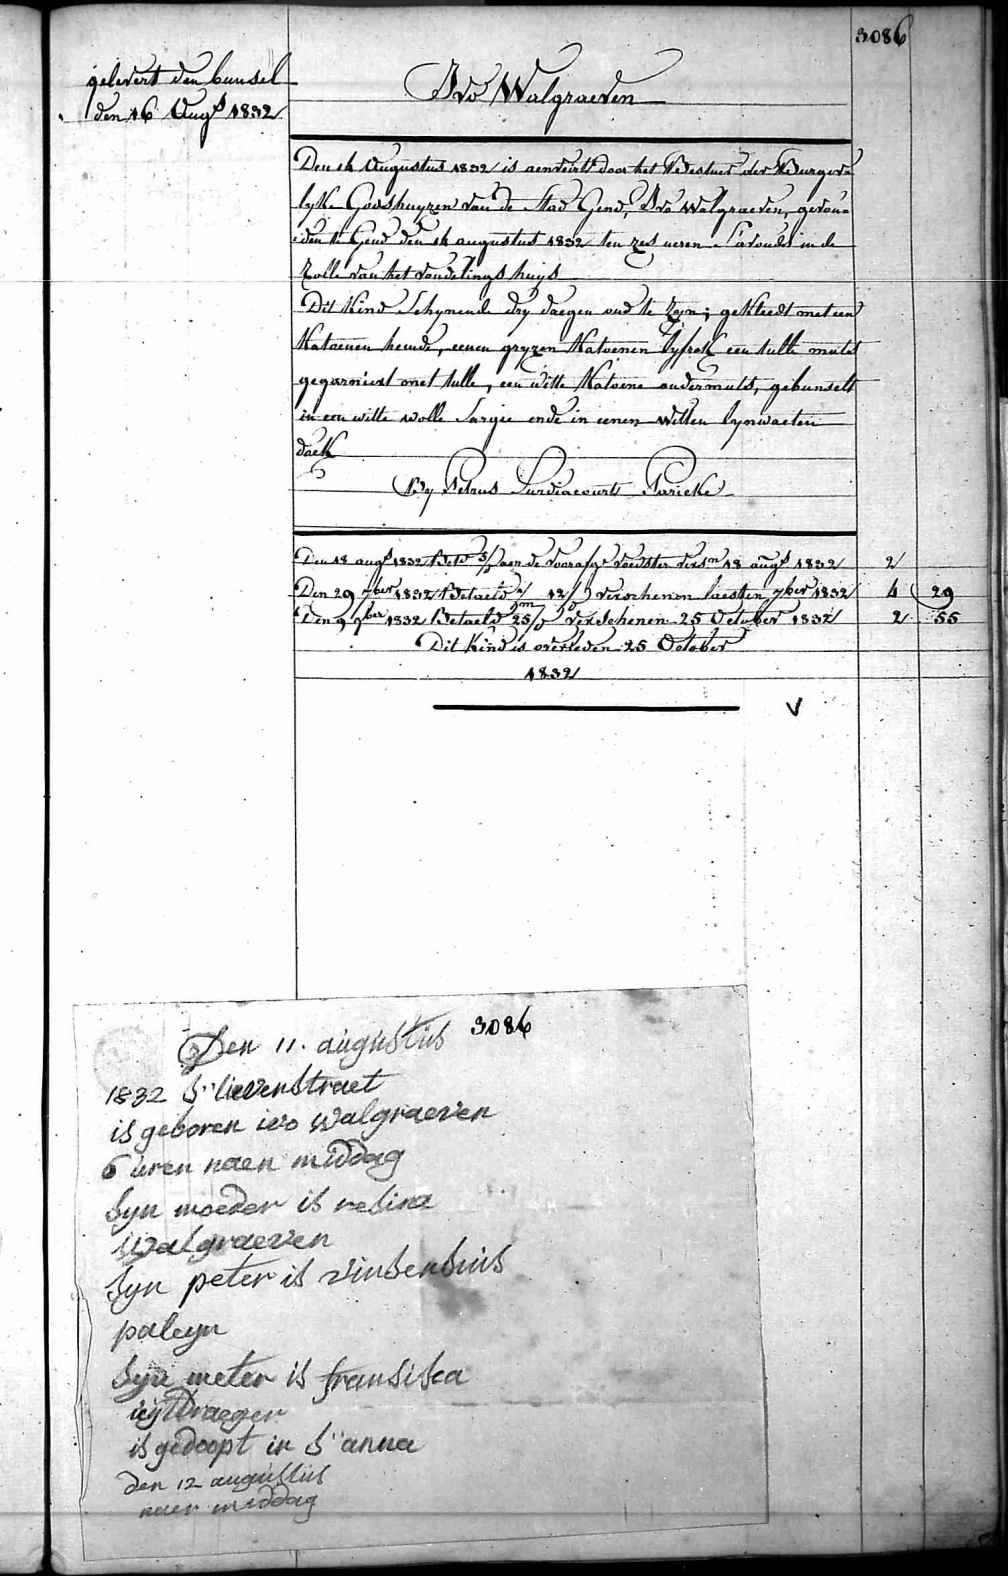 3086
gelevert den bunsel
den 16 Augs 1832
Ivo Walgraeven
Den 14 Augustus 1832 is aenveirt door het Bestuer der Burger=
lyke Godshuyzen van de Stad Gend, Ivo Walgraeven, gevon=
den te Gend den 14 augustus 1832 ten zes ueren s'avonds in de
Rolle van het vondelings huys
Dit Kind Schynende dry daegen oud te zyn; gekleedt met een
Katoenen hemde, eenen gryzen Katoenen lyfrok een tulle muts
gegarnierd met tulle, een witte Katoene ondermuts, gebunselt
in een witte wolle Sargie ende in eenen witten lynwaeten
doek
By Petrus Parieke
Den 18 augs 1832 aen de voedster 18 augs 1832 2
Den 29 7ber 1832 Betaeld 12/ verschenen laesten 7ber 1832 4 29
Den 9 9ber 1832 Betaeld 25/ verschenen 25 October 1832 2 55
Dit Kind is overleden 25 October
1832
V
3086
Den 11. augustus
1832 S" lievenstraet
is geboren ivo walgraeven
6 uren naen middag
Syn moeder is resina
walgraeven
Syn peter is vinsensius
paleyn
Syn meter is fransisca
uyttraeger
is gedoopt in S" anna
den 12 augustus
naer middag